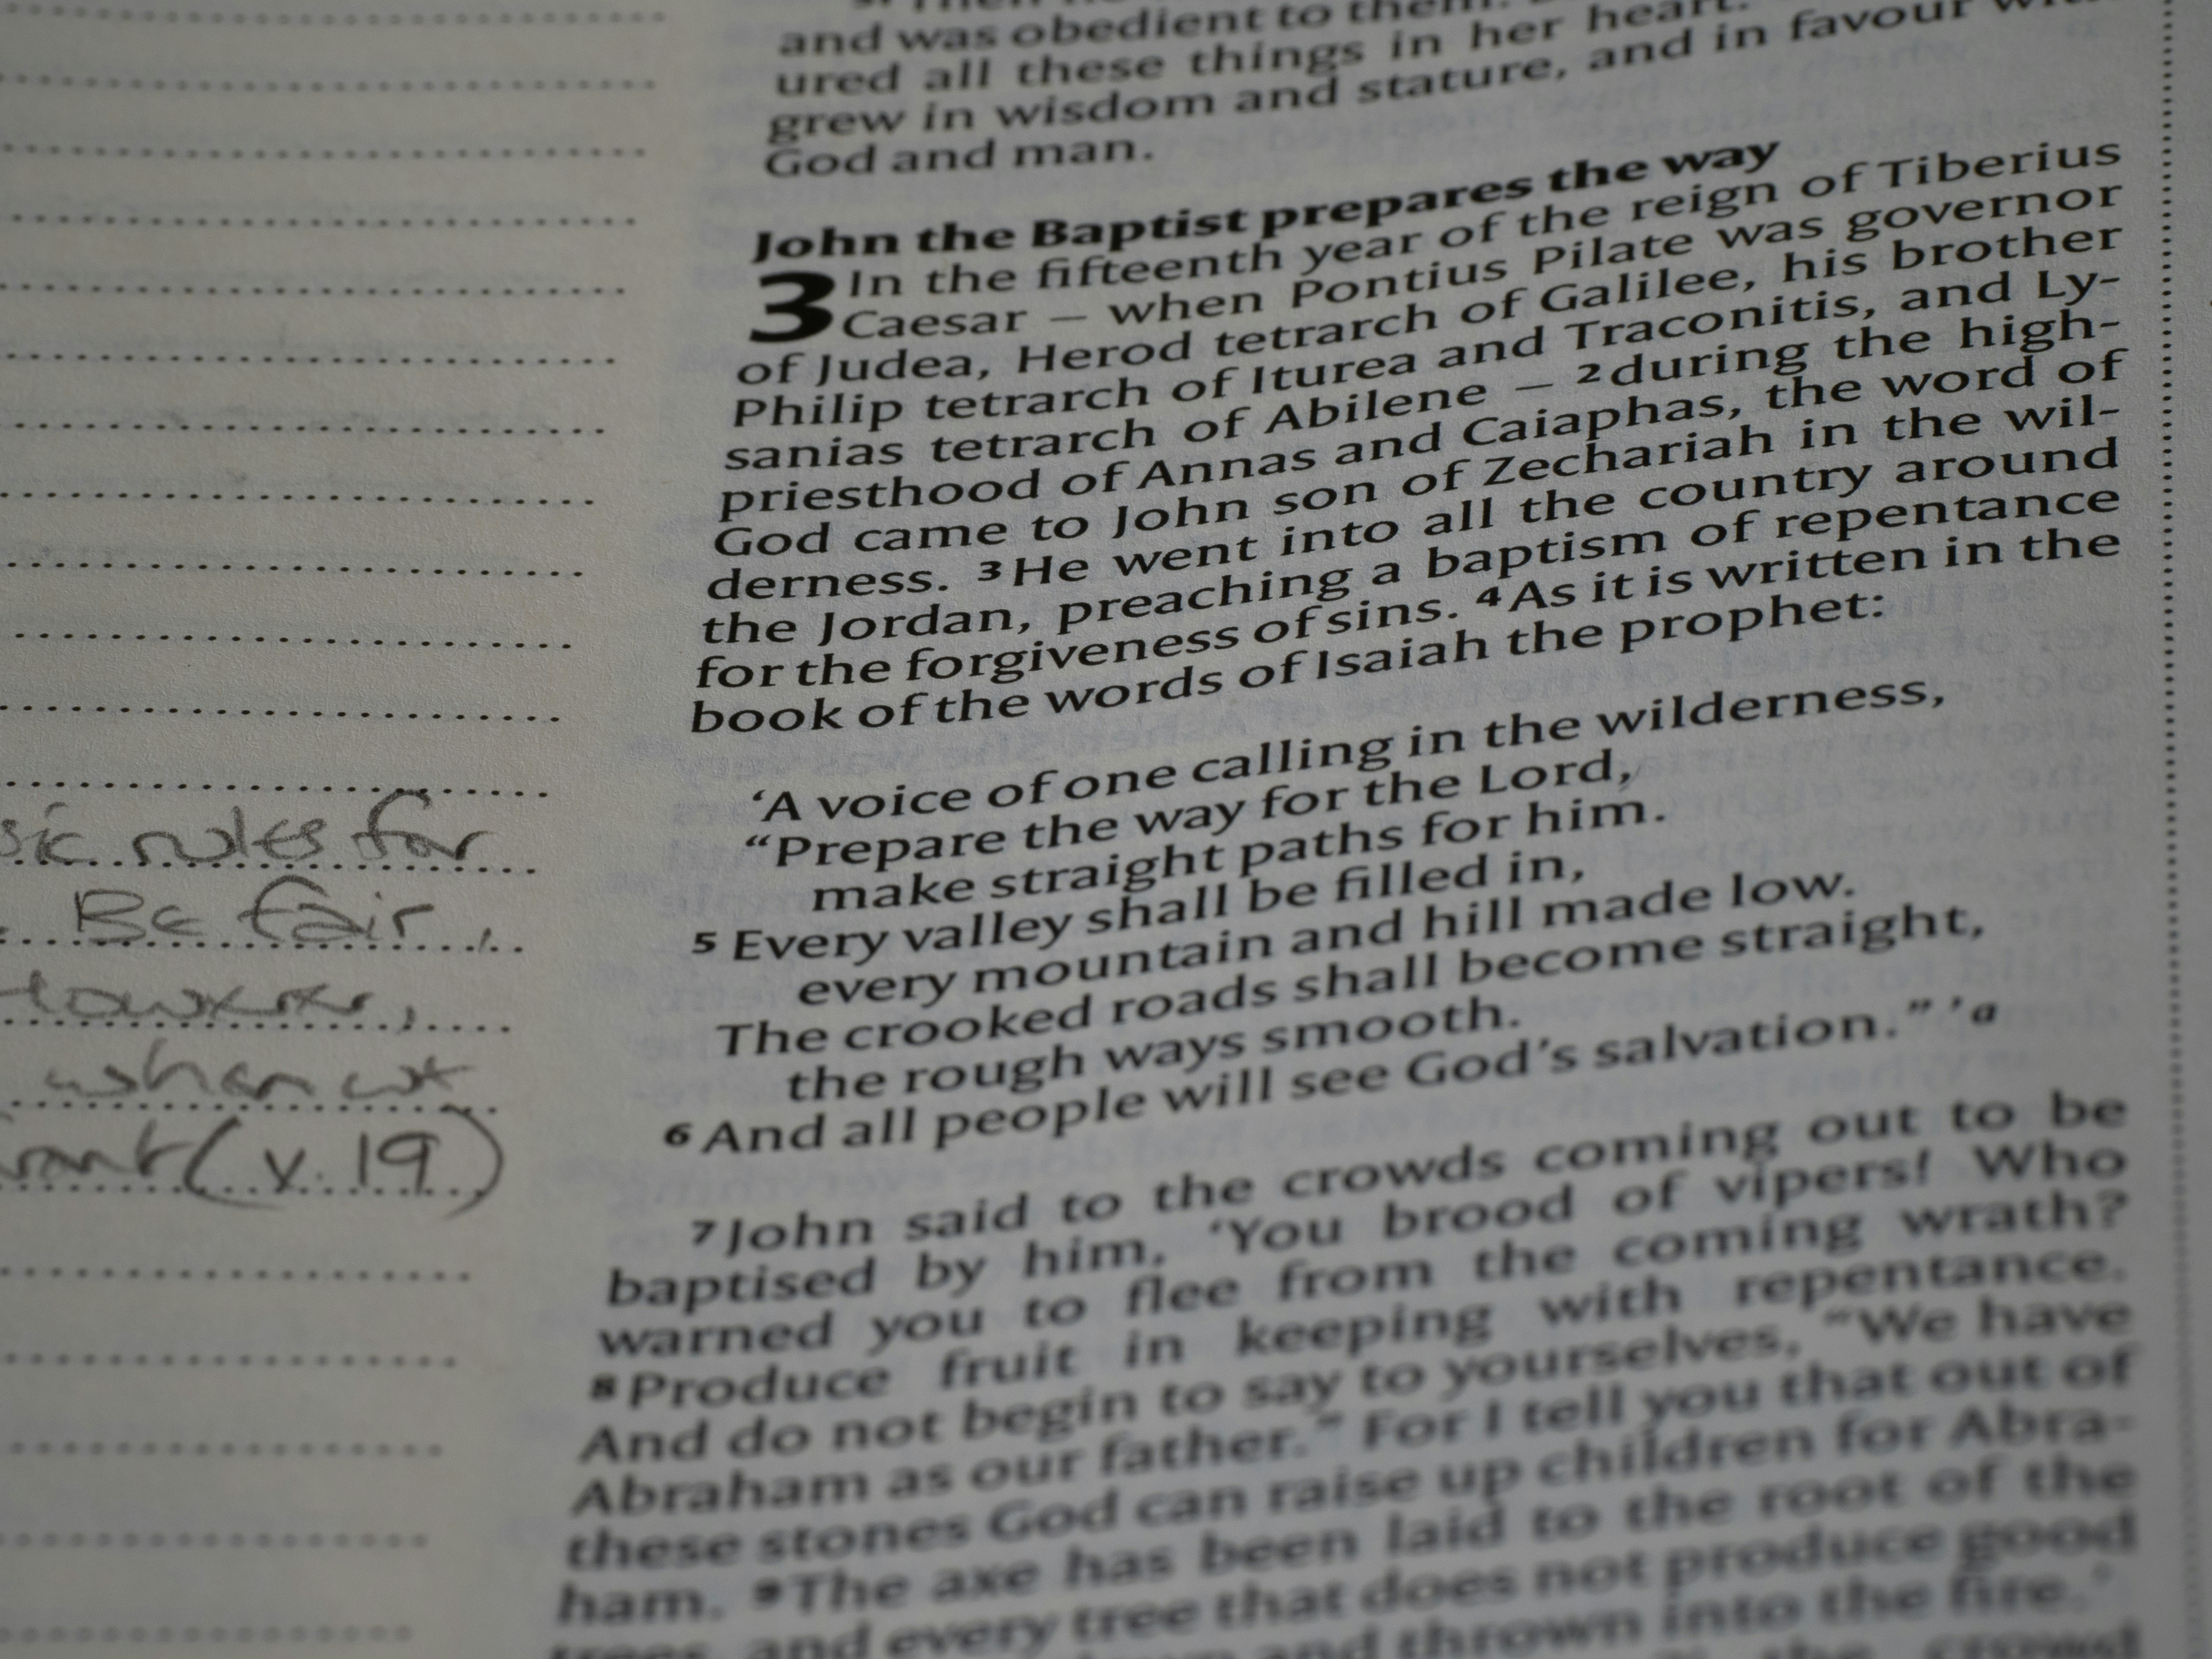 and was obedient to them.
ured all these things in her heart.
grew in wisdom and stature, and in favour with
God and man.
John the Baptist prepares the way
3 In the fifteenth year of the reign of Tiberius
Caesar – when Pontius Pilate was governor
of Judea, Herod tetrarch of Galilee, his brother
Philip tetrarch of Iturea and Traconitis, and Ly-
sanias tetrarch of Abilene – 2 during the high-
priesthood of Annas and Caiaphas, the word of
God came to John son of Zechariah in the wil-
derness. 3 He went into all the country around
the Jordan, preaching a baptism of repentance
for the forgiveness of sins. 4 As it is written in the
book of the words of Isaiah the prophet:
‘A voice of one calling in the wilderness,
“Prepare the way for the Lord,
make straight paths for him.
5 Every valley shall be filled in,
every mountain and hill made low.
The crooked roads shall become straight,
the rough ways smooth.
6 And all people will see God’s salvation.” ’ a
7 John said to the crowds coming out to be
baptised by him, ‘You brood of vipers! Who
warned you to flee from the coming wrath?
8 Produce fruit in keeping with repentance.
And do not begin to say to yourselves, “We have
Abraham as our father.” For I tell you that out of
these stones God can raise up children for Abra-
ham. 9 The axe has been laid to the root of the
trees, and every tree that does not produce good
and thrown into the fire.’
the crowd
rules for
Be fair,
However,
when we
(v. 19)